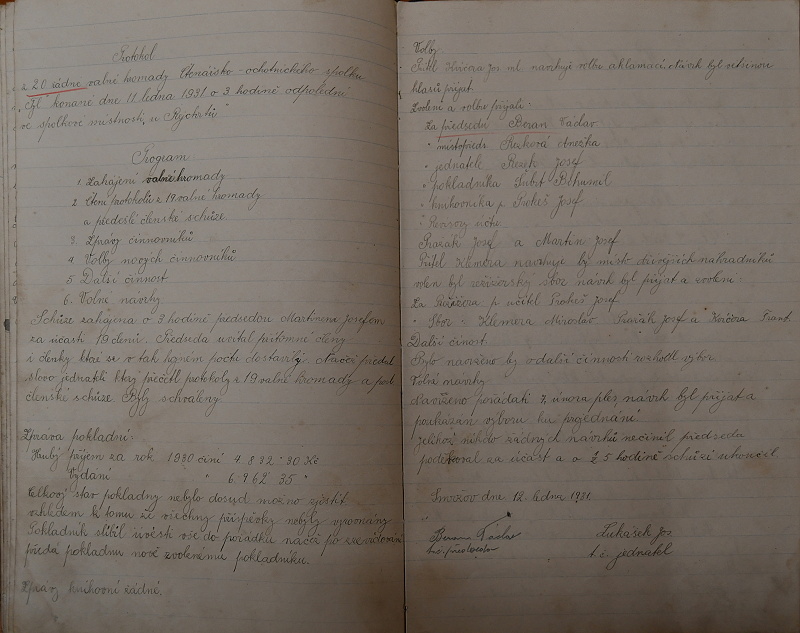 Protokol
z 20 řádné valné hromady Čtenářsko-ochotnického spolku
"Tyl" konané dne 11. ledna 1931 o 3 hodině odpolední
ve spolkové místnosti u Rychtrů"
Program
1. Zahájení valné hromady
2. Čtení protokolů z 19. valné hromady
a předešlé členské schůze.
3. Zprávy činovníků
4. Volby nových činovníků
5. Další činnost
6. Volné návrhy
Schůze zahájena o 3. hodině předsedou Martinem Josefem
za účasti 19 členů. Předseda uvítal přítomné členy
i členky kteří se v tak hojném počtu dostavili. Načež předal
slovo jednateli který přečetl protokoly z 19 valné hromady a
členské schůze. Byly schváleny.
Zpráva pokladní:
Hrubý příjem za rok 1930 činí 4.892·30 Kč
Vydání " 6.962 35 "
Celkový stav pokladny nebylo dosud možno zjistit
vzhledem k tomu že všechny příspěvky nebyly vyrovnány
Pokladník slíbil uvésti vše do pořádku načež po
předá pokladnu nově zvolenému pokladníku.
Zprávy knihovní žádné.
Volby
Přítel Kvičera Jos ml. navrhuje volbu aklamací. Návrh byl většinou
hlasů přijat.
Zvoleni a volbu přijali:
Za předsedu Beran Václav
" místopředs. Anežka
" jednatele Josef
" pokladníka Bohumil
" knihovníka p. Prokeš Josef
" Revisory účtů
Pražák Josef a Martin Josef
Přítel Klemera navrhuje by místo dřívějších náhradníků
volen byl režisérský sbor návrh byl přijat a zvoleni:
Za Režiséra p. učitel Prokeš Josef
" Sbor: Klemera Miroslav Pražák Josef a Kvičera Frant.
Další činnost
Bylo navrženo by o další činnosti rozhodl výbor.
Volné návrhy
Navrženo pořádati 7. února ples návrh byl přijat a
poukázán výboru ku projednání.
Jelikož nikdo žádných návrhů nečinil předseda
poděkoval za účast a o ½ 5 hodině schůzi skončil
dne 12. ledna 1931.
Beran Václav
t.č. předseda
Lukášek Jos
t.č. jednatel